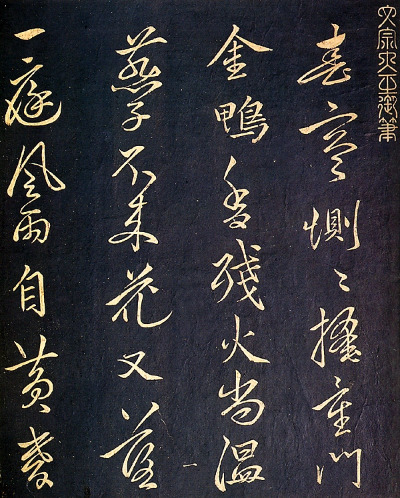 文宗大王御筆
春寒惻〻掩重門
金鴨香殘火尚溫
燕子不來花又落
一庭風雨自黃昏